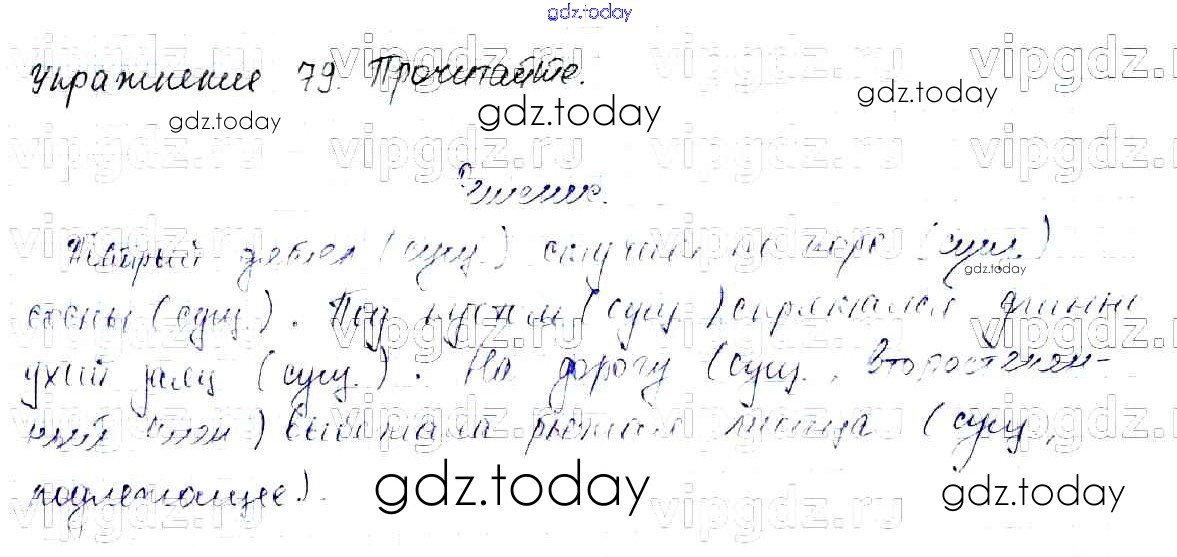 gdz.today
Упражнение 79. Прочитайте.
gdz.today
gdz.today
gdz.today
Решение.
дятел (сущ.) стучит по коре (сущ.)
gdz.today
сосны (сущ.). Под кустом (сущ.) спрятался длинно
ухий заяц (сущ.). На дорогу (сущ., второстепен-
ный член) выбежала рыжая лисица (сущ.,
подлежащее).
gdz.today
gdz.today
vipgdz.ru vipgdz.ru vipgdz.ru vipgdz.ru